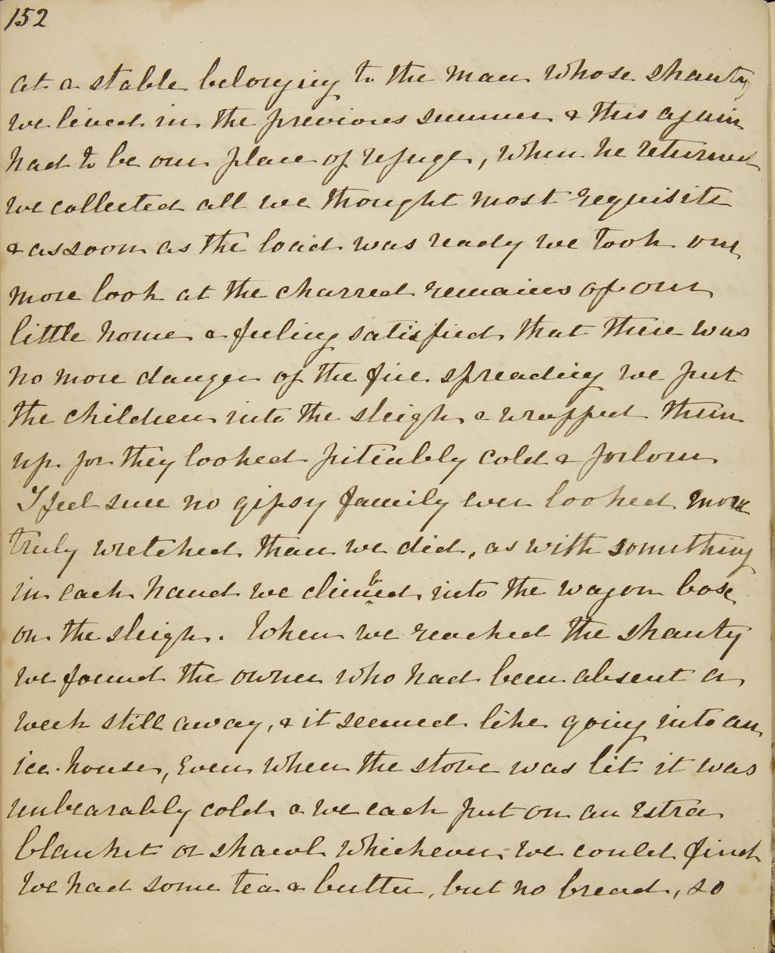 152
at a stable belonging to the man whose shanty
we lived in the previous summer & this again
had to be our place of refuge, when he returned
we collected all we thought most requisite
& as soon as the load was ready we took one
more look at the charred remains of our
little home & feeling satisfied that there was
no more danger of the fire spreading we put
the children into the sleigh & wrapped them
up for they looked pitiably cold & forlorn
I feel sure no gipsy family ever looked more
truly wretched than we did, as with something
in each hand we climbed into the wagon box
on the sleigh. When we reached the shanty
we found the owner who had been absent a
week still away, & it seemed like going into an
ice-house, Even when the stove was lit it was
unbearably cold & we each put on an extra
blanket or shawl whichever we could find
We had some tea & butter, but no bread, so